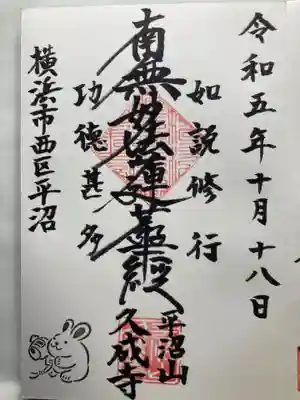 令和五年十月十八日
如説修行
南無妙法蓮華経
功徳甚多
平沼山
久成寺
横浜市西区平沼